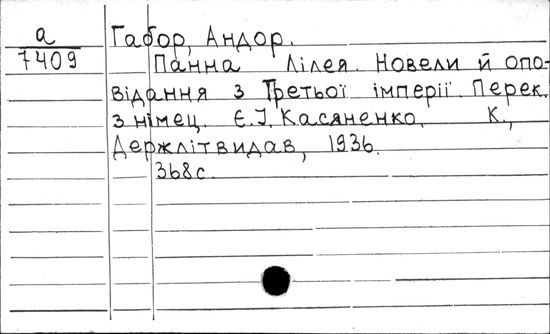 а
7409
Габор, Андор.
Панна Лілея. Новели й опо-
відання з Третьої імперії. Перек.
з німец. Є.І. Касяненко. К.,
Держлітвидав, 1936.
368с.